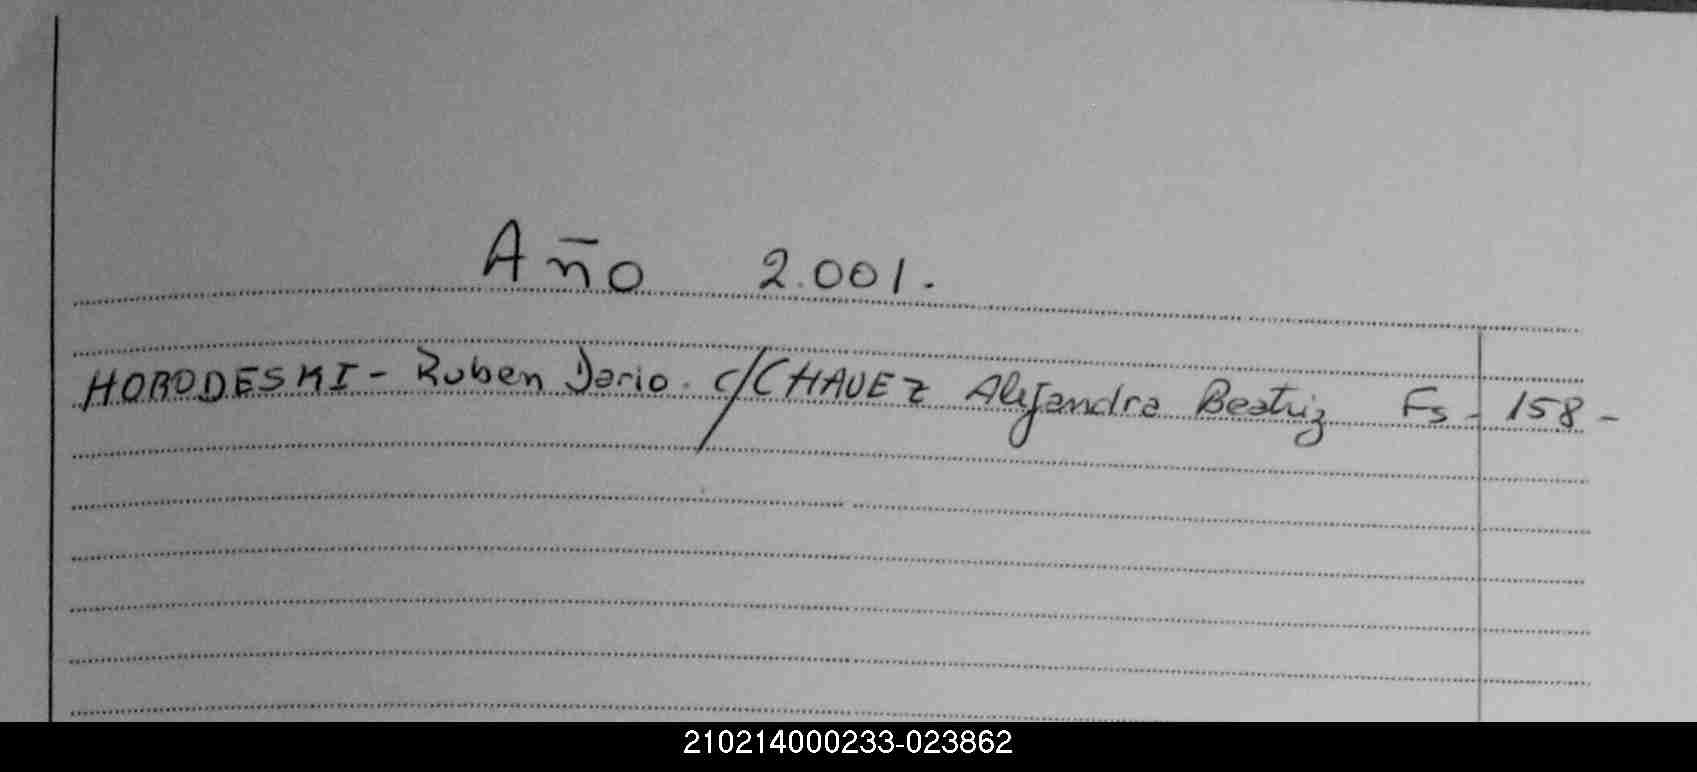 Año 2.001.
HORODESKI - Ruben Dario. c/CHAVEZ Alejandra Beatriz Fs - 158 -
210214000233-023862